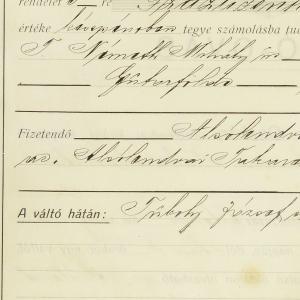 rendelet
értéke készpénzben tegye számolásba
T. Németh Mihály
Göntérfölde
Fizetendő Alsólendva
az. Alsólendvai Takar
A váltó hátán: Tüboly József